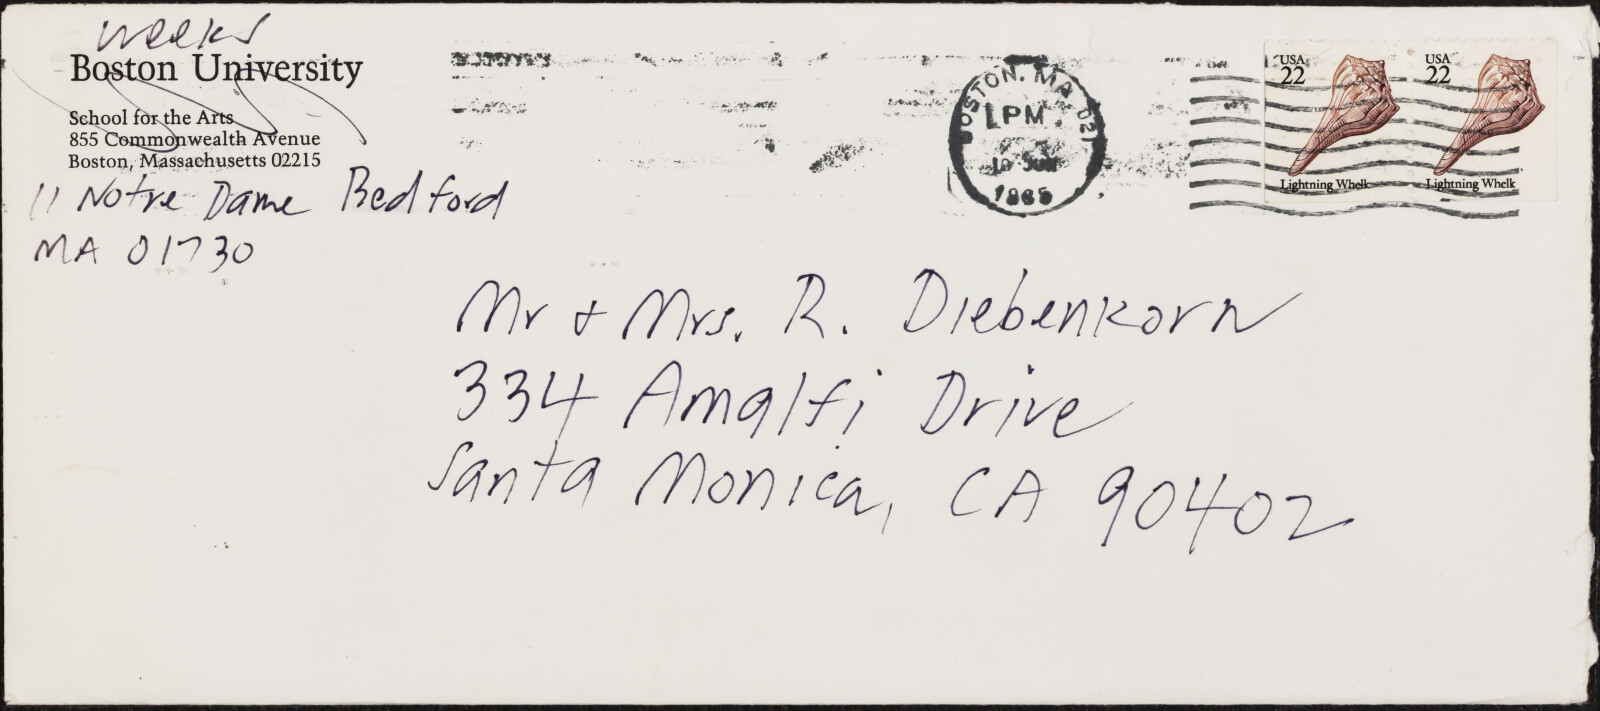 weeks
Boston University
School for the Arts
855 Commonwealth Avenue
Boston, Massachusetts 02215
11 Notre Dame Bedford
MA 01730
BOSTON, MA 021
PM
1985
USA
22
Lightning Whelk
USA
22
Lightning Whelk
Mr & Mrs. R. Diebenkorn
334 Amalfi Drive
Santa Monica, CA 90402